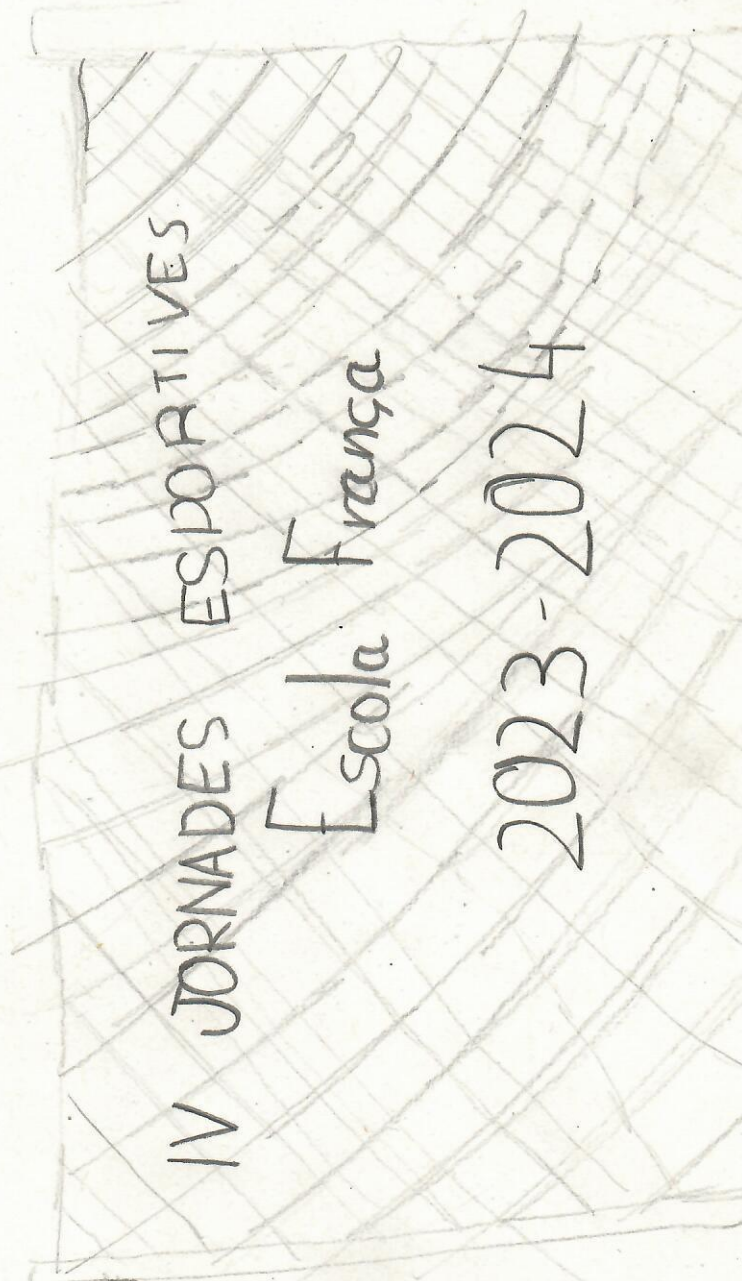 IV JORNADES ESPORTIVES
Escola França
2023-2024